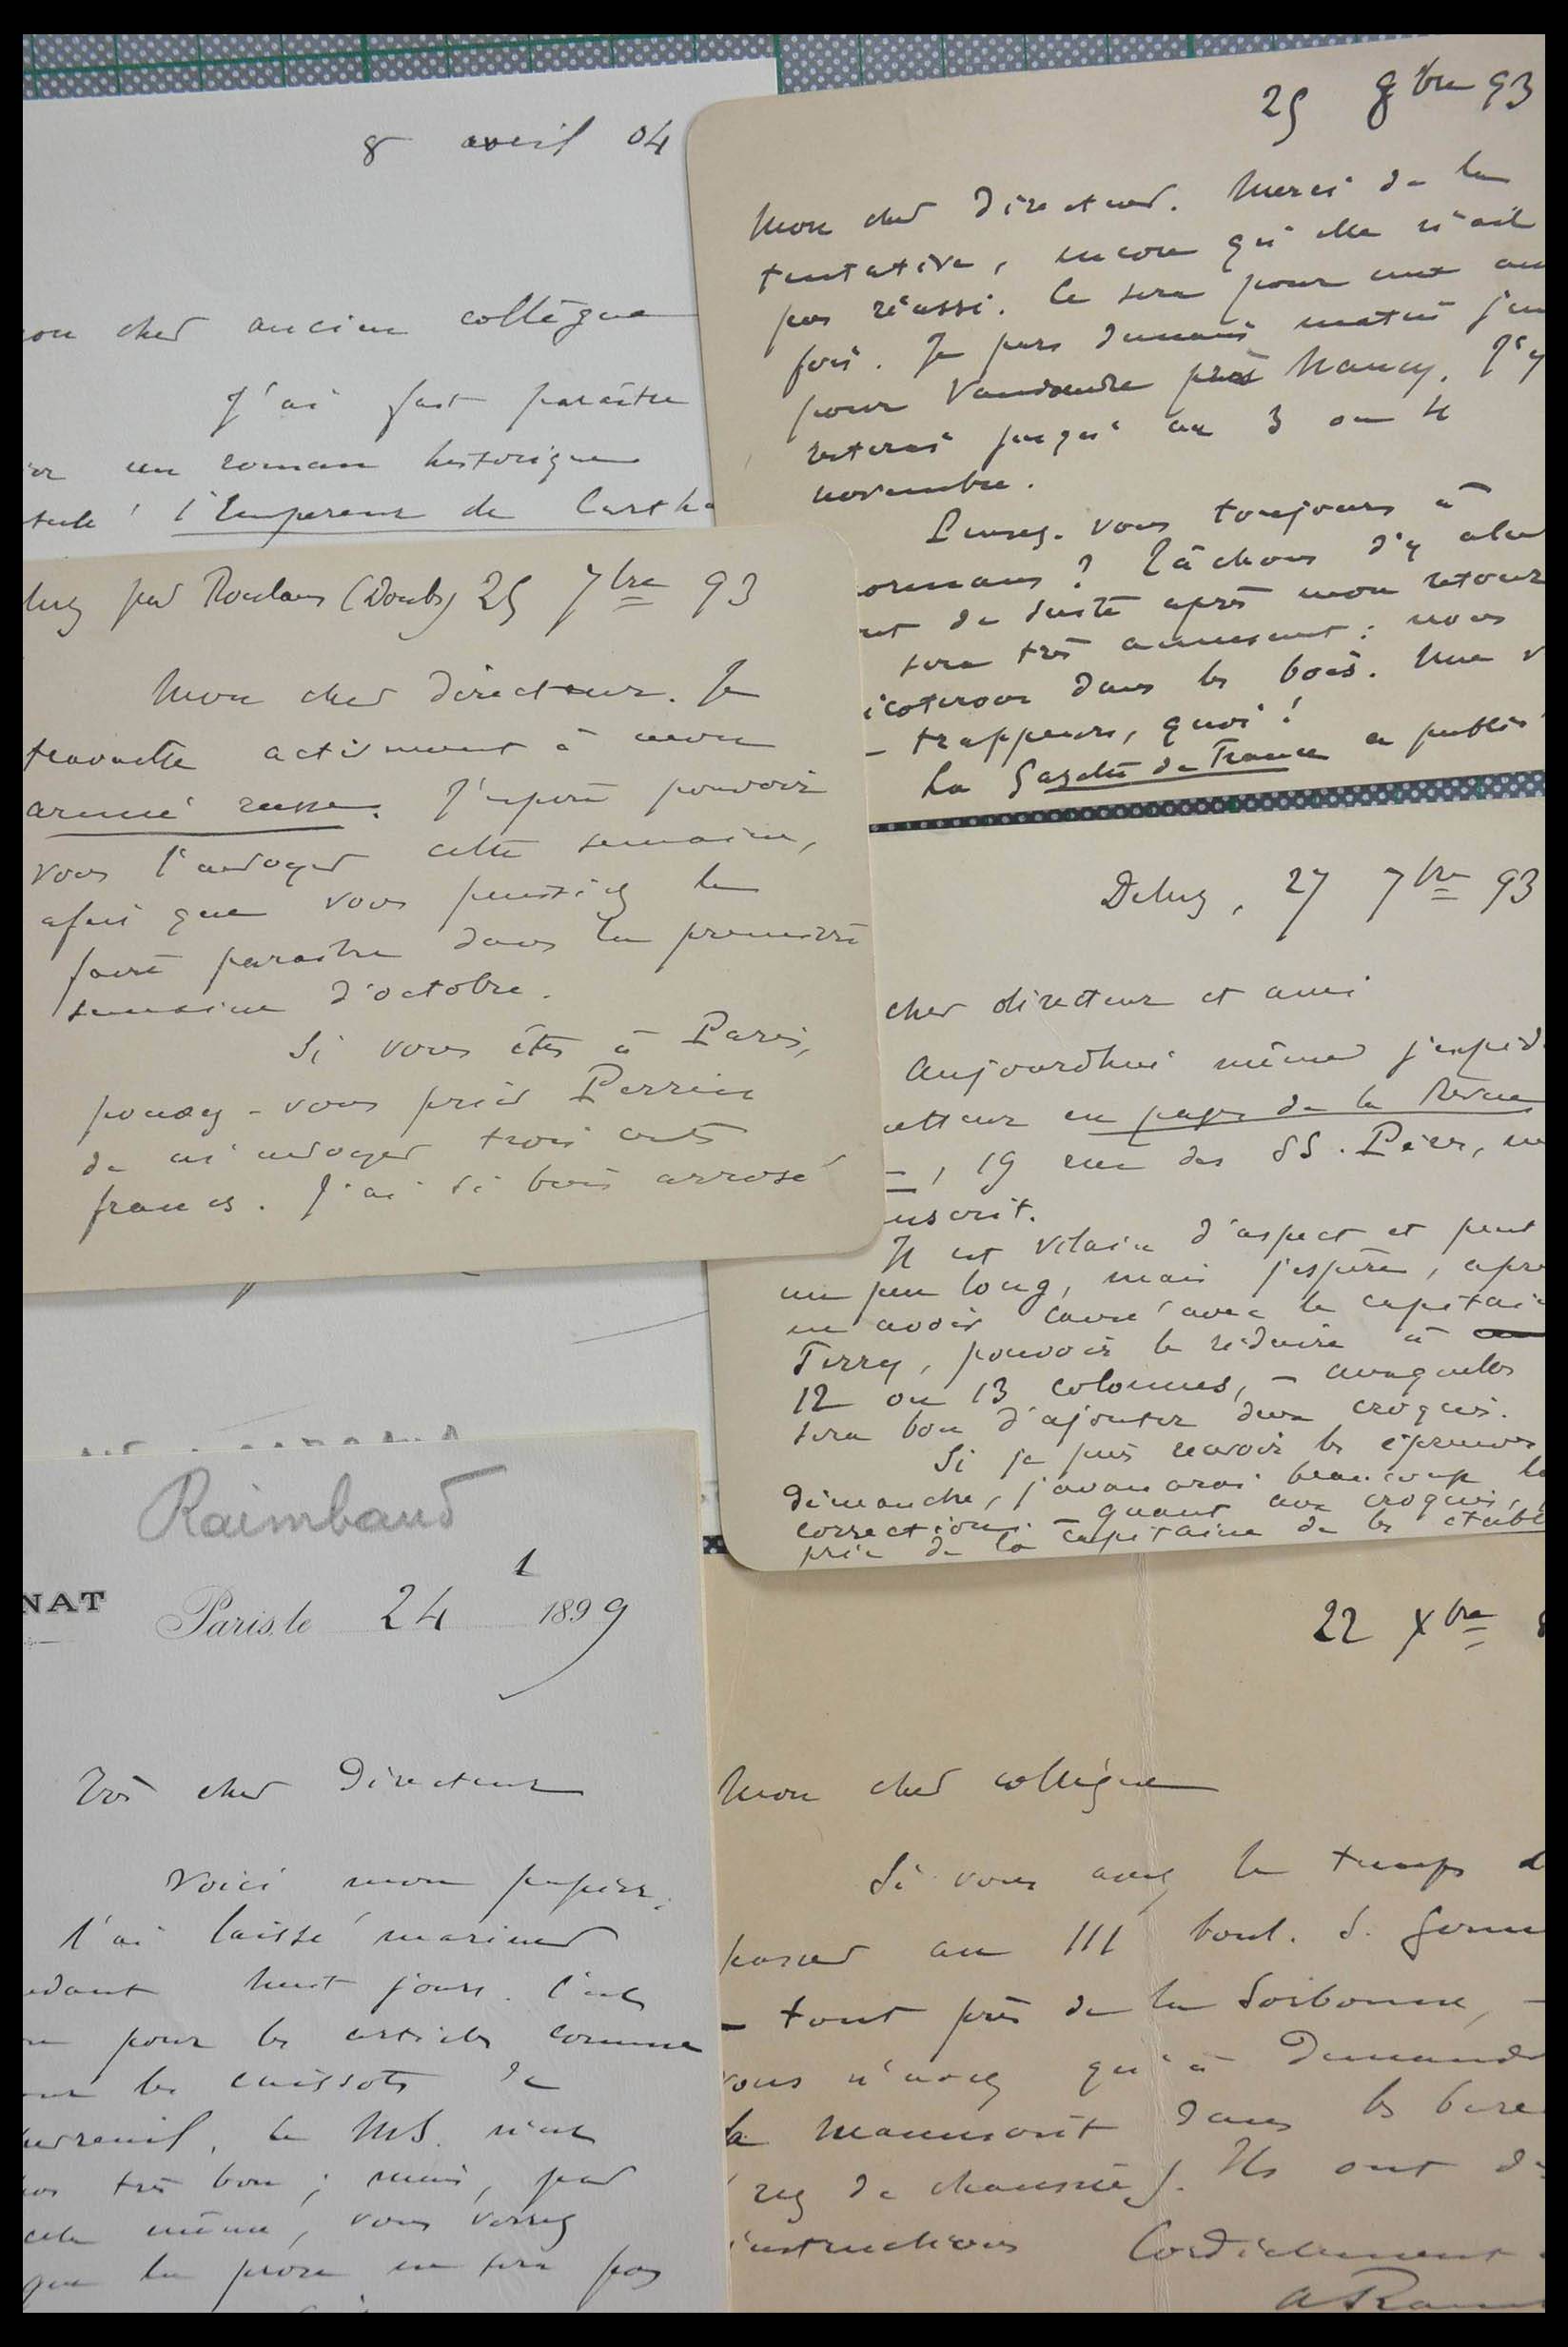 8 avril 04
mon cher ancien collègue
J'ai fait paraître
un roman historique
l'Empereur de Cartha
25 8bre 93
Mon cher Directeur. Merci de la
tentative, encore qu'elle n'ait
pas réussi. Ce sera pour une au
fois. Je pars demain matin
pour Vandœuvre près Nancy. J'y
resterai jusqu'au 3 ou 4
novembre.
Pensez-vous toujours à
ormans ? Tâchons d'y aller
de suite après mon retour
sera très amusant : nous
dans les bois. Une v
- trappeurs, quoi !
La Gazette de France a publié
par Roulans (Doubs) 25 7bre 93
Mon cher directeur. Je
travaille activement à mon
armée russe. J'espère pouvoir
vous l'envoyer cette semaine,
afin que vous puissiez la
faire paraître dans la première
semaine d'octobre.
Si vous êtes à Paris,
pouvez-vous prier Perrin
de m'envoyer trois cents
francs. J'ai si bien arrosé
Deluz, 27 7bre 93
cher directeur et ami
Aujourd'hui même j'expéd
metteur en pages de la Revue
-, 19 rue des SS. Pères, m
nuscrit.
Il est vilain d'aspect et peut
un peu long, mais j'espère, apr
en avoir causé avec le capitai
Firry, pouvoir le réduire à
12 ou 13 colonnes, - auxquelles
sera bon d'ajouter deux croquis.
Si je puis recevoir les épreuves
Dimanche, j'avancerai beaucoup la
correction. - Quant aux croquis,
prie le capitaine de les établ
Raimbaud
NAT
Paris, le 24 1 1899
Très cher Directeur
Voici mon papier.
l'ai laissé mariner
ndant huit jours. C'est
pour les articles comme
les cuissots de
hevreuil. Le MS. n'est
pas très bon ; mais, par
cela même, vous verrez
que la prose ne sera pas
22 Xbre
Mon cher collègue
Si vous avez le temps d
passer au 111 boul. S. Germ
- tout près de la Sorbonne, -
vous n'avez qu'à demande
le manuscrit dans les bure
(rez de chaussée). Ils ont d
instructions Cordialement
ARam